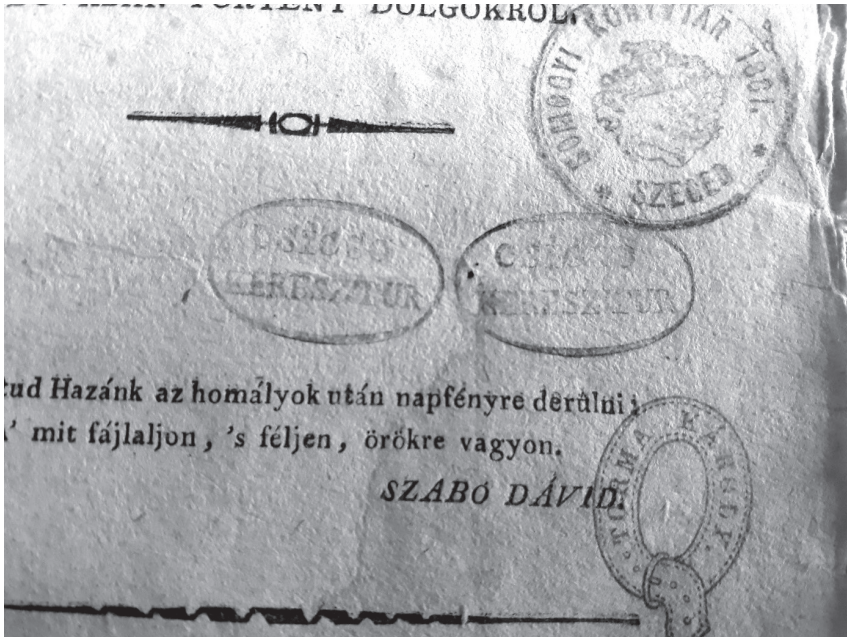 TÖRTÉNT DOLGOKRÓL.
SOMOGYI KÖNYVTÁR 1881.
* SZEGED *
CSICSÓ
KERESZTUR
CSICSÓ
KERESZTUR
tud Hazánk az homályok után napfényre derűlni;
' mit fájlaljon, 's féljen, örökre vagyon.
SZABÓ DÁVID.
TORMA KÁROLY.